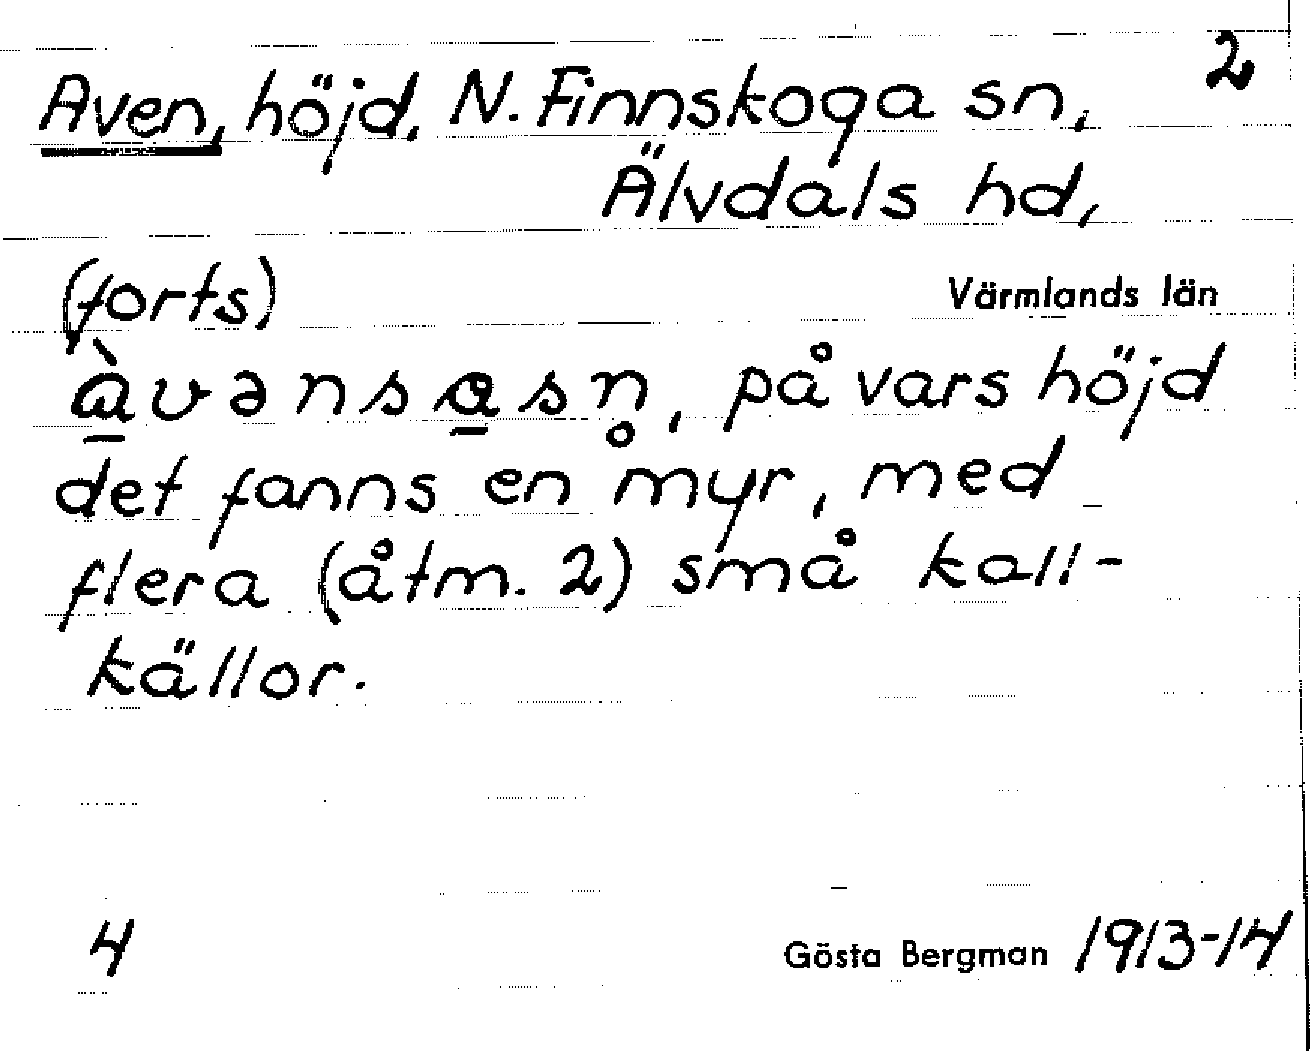 2
Aven, höjd, N. Finnskoga sn,
Älvdals hd,
(forts) Värmlands län
à̱vənsa̱sn̥, på vars höjd
det fanns en myr, med
flera (åtm. 2) små kall-
källor.
4 Gösta Bergman 1913-14